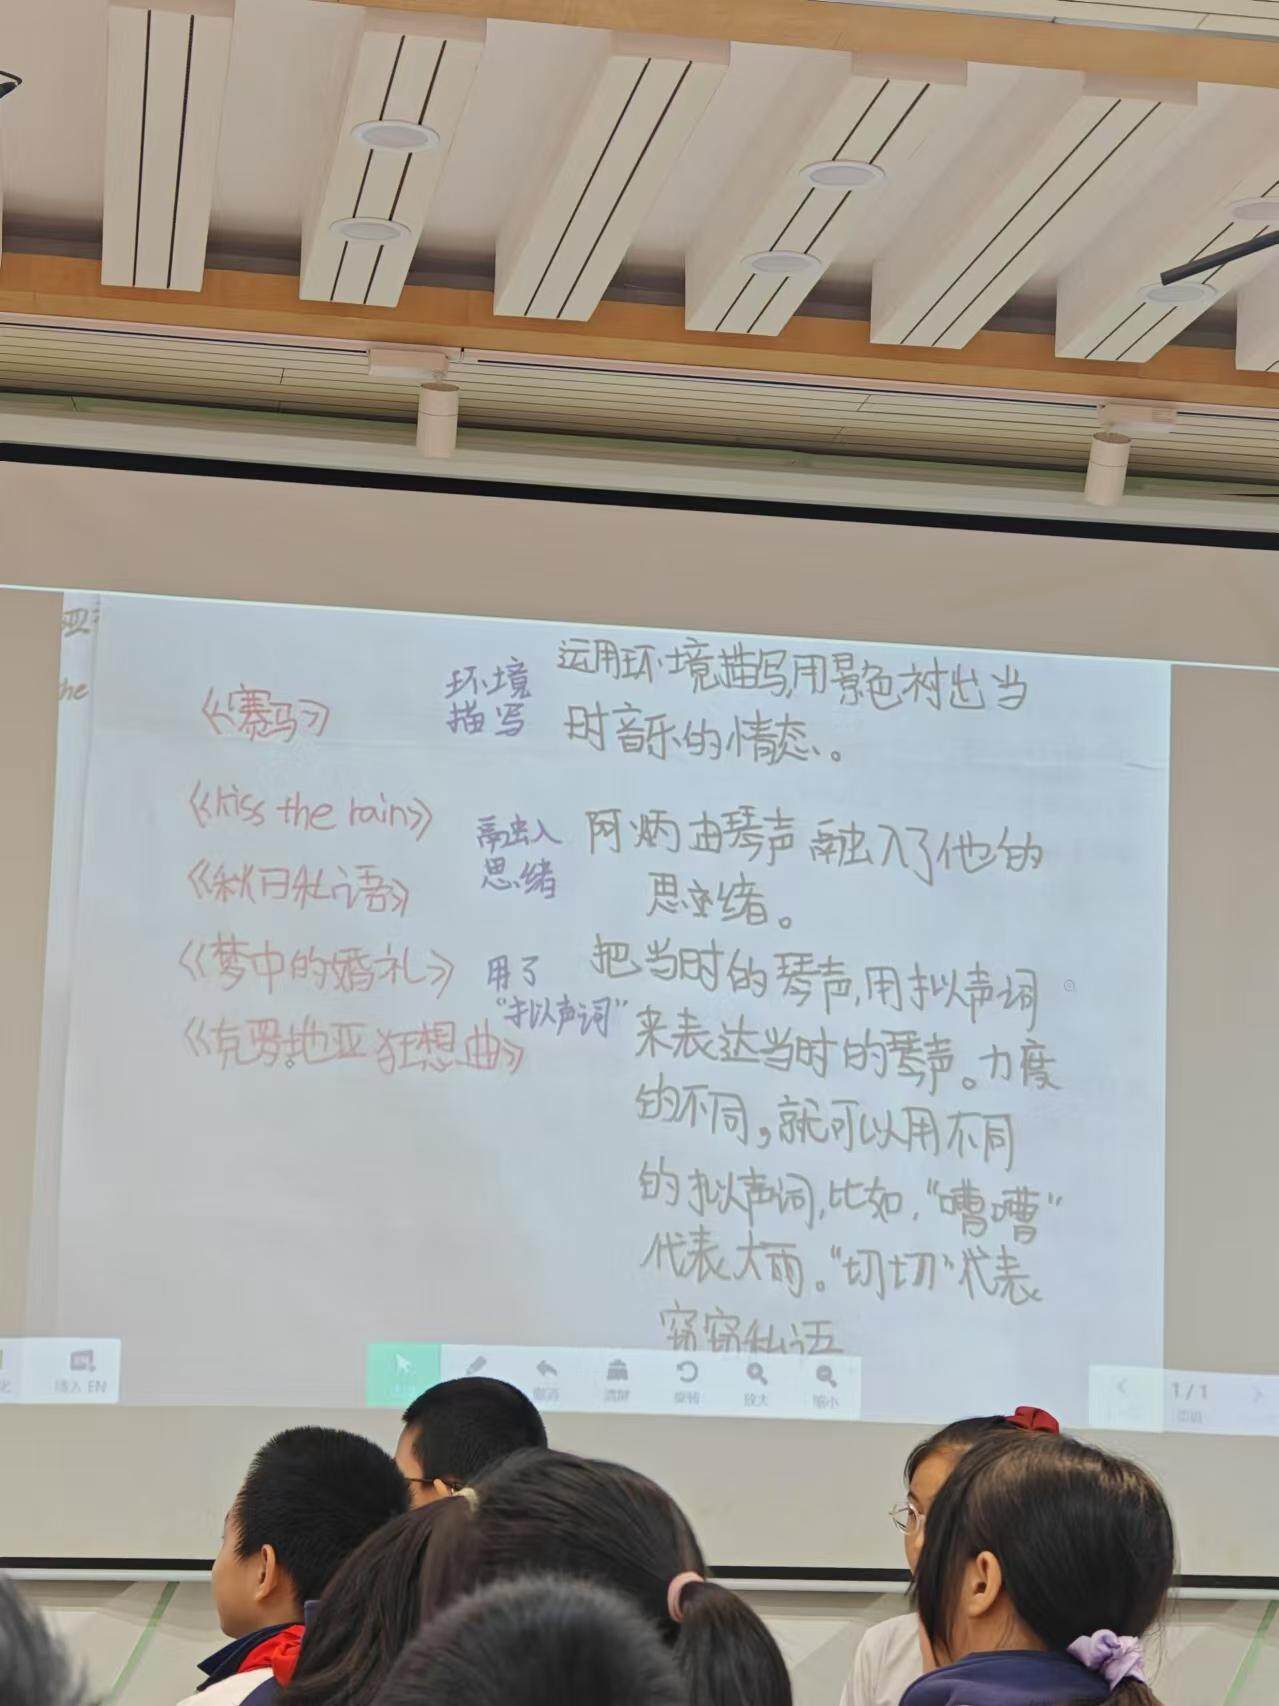 《赛马》
《kiss the rain》
《秋日私语》
《梦中的婚礼》
《克罗地亚狂想曲》
环境
描写
运用环境描写,用景色衬出当
时音乐的情态。
融入
思绪
阿炳由琴声融入了他的
思绪。
用了
“拟声词”
把当时的琴声,用拟声词
来表达当时的琴声。力度
的不同,就可以用不同
的拟声词,比如,“嘈嘈”
代表大雨。“切切”代表
窃窃私语
插入 EN
撤消
清屏
旋转
放大
缩小
1 / 1